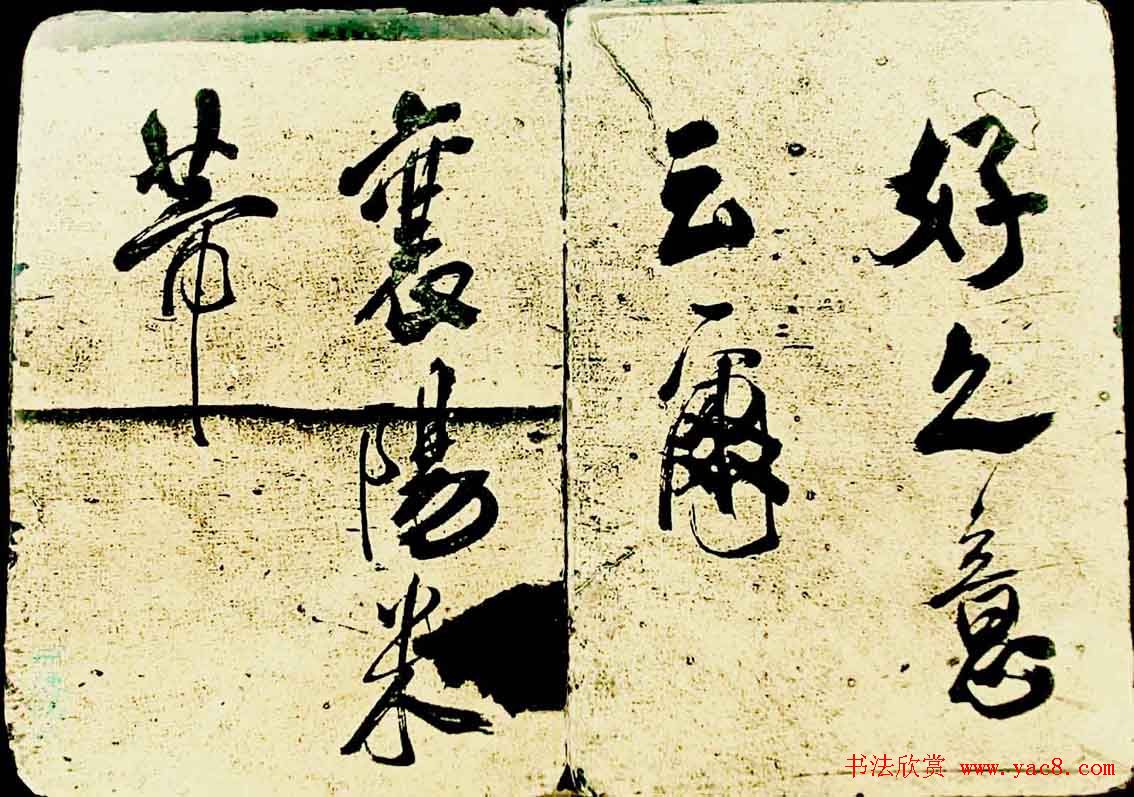 好之意
云爾
襄陽米
芾
书法欣赏 www.yac8.com